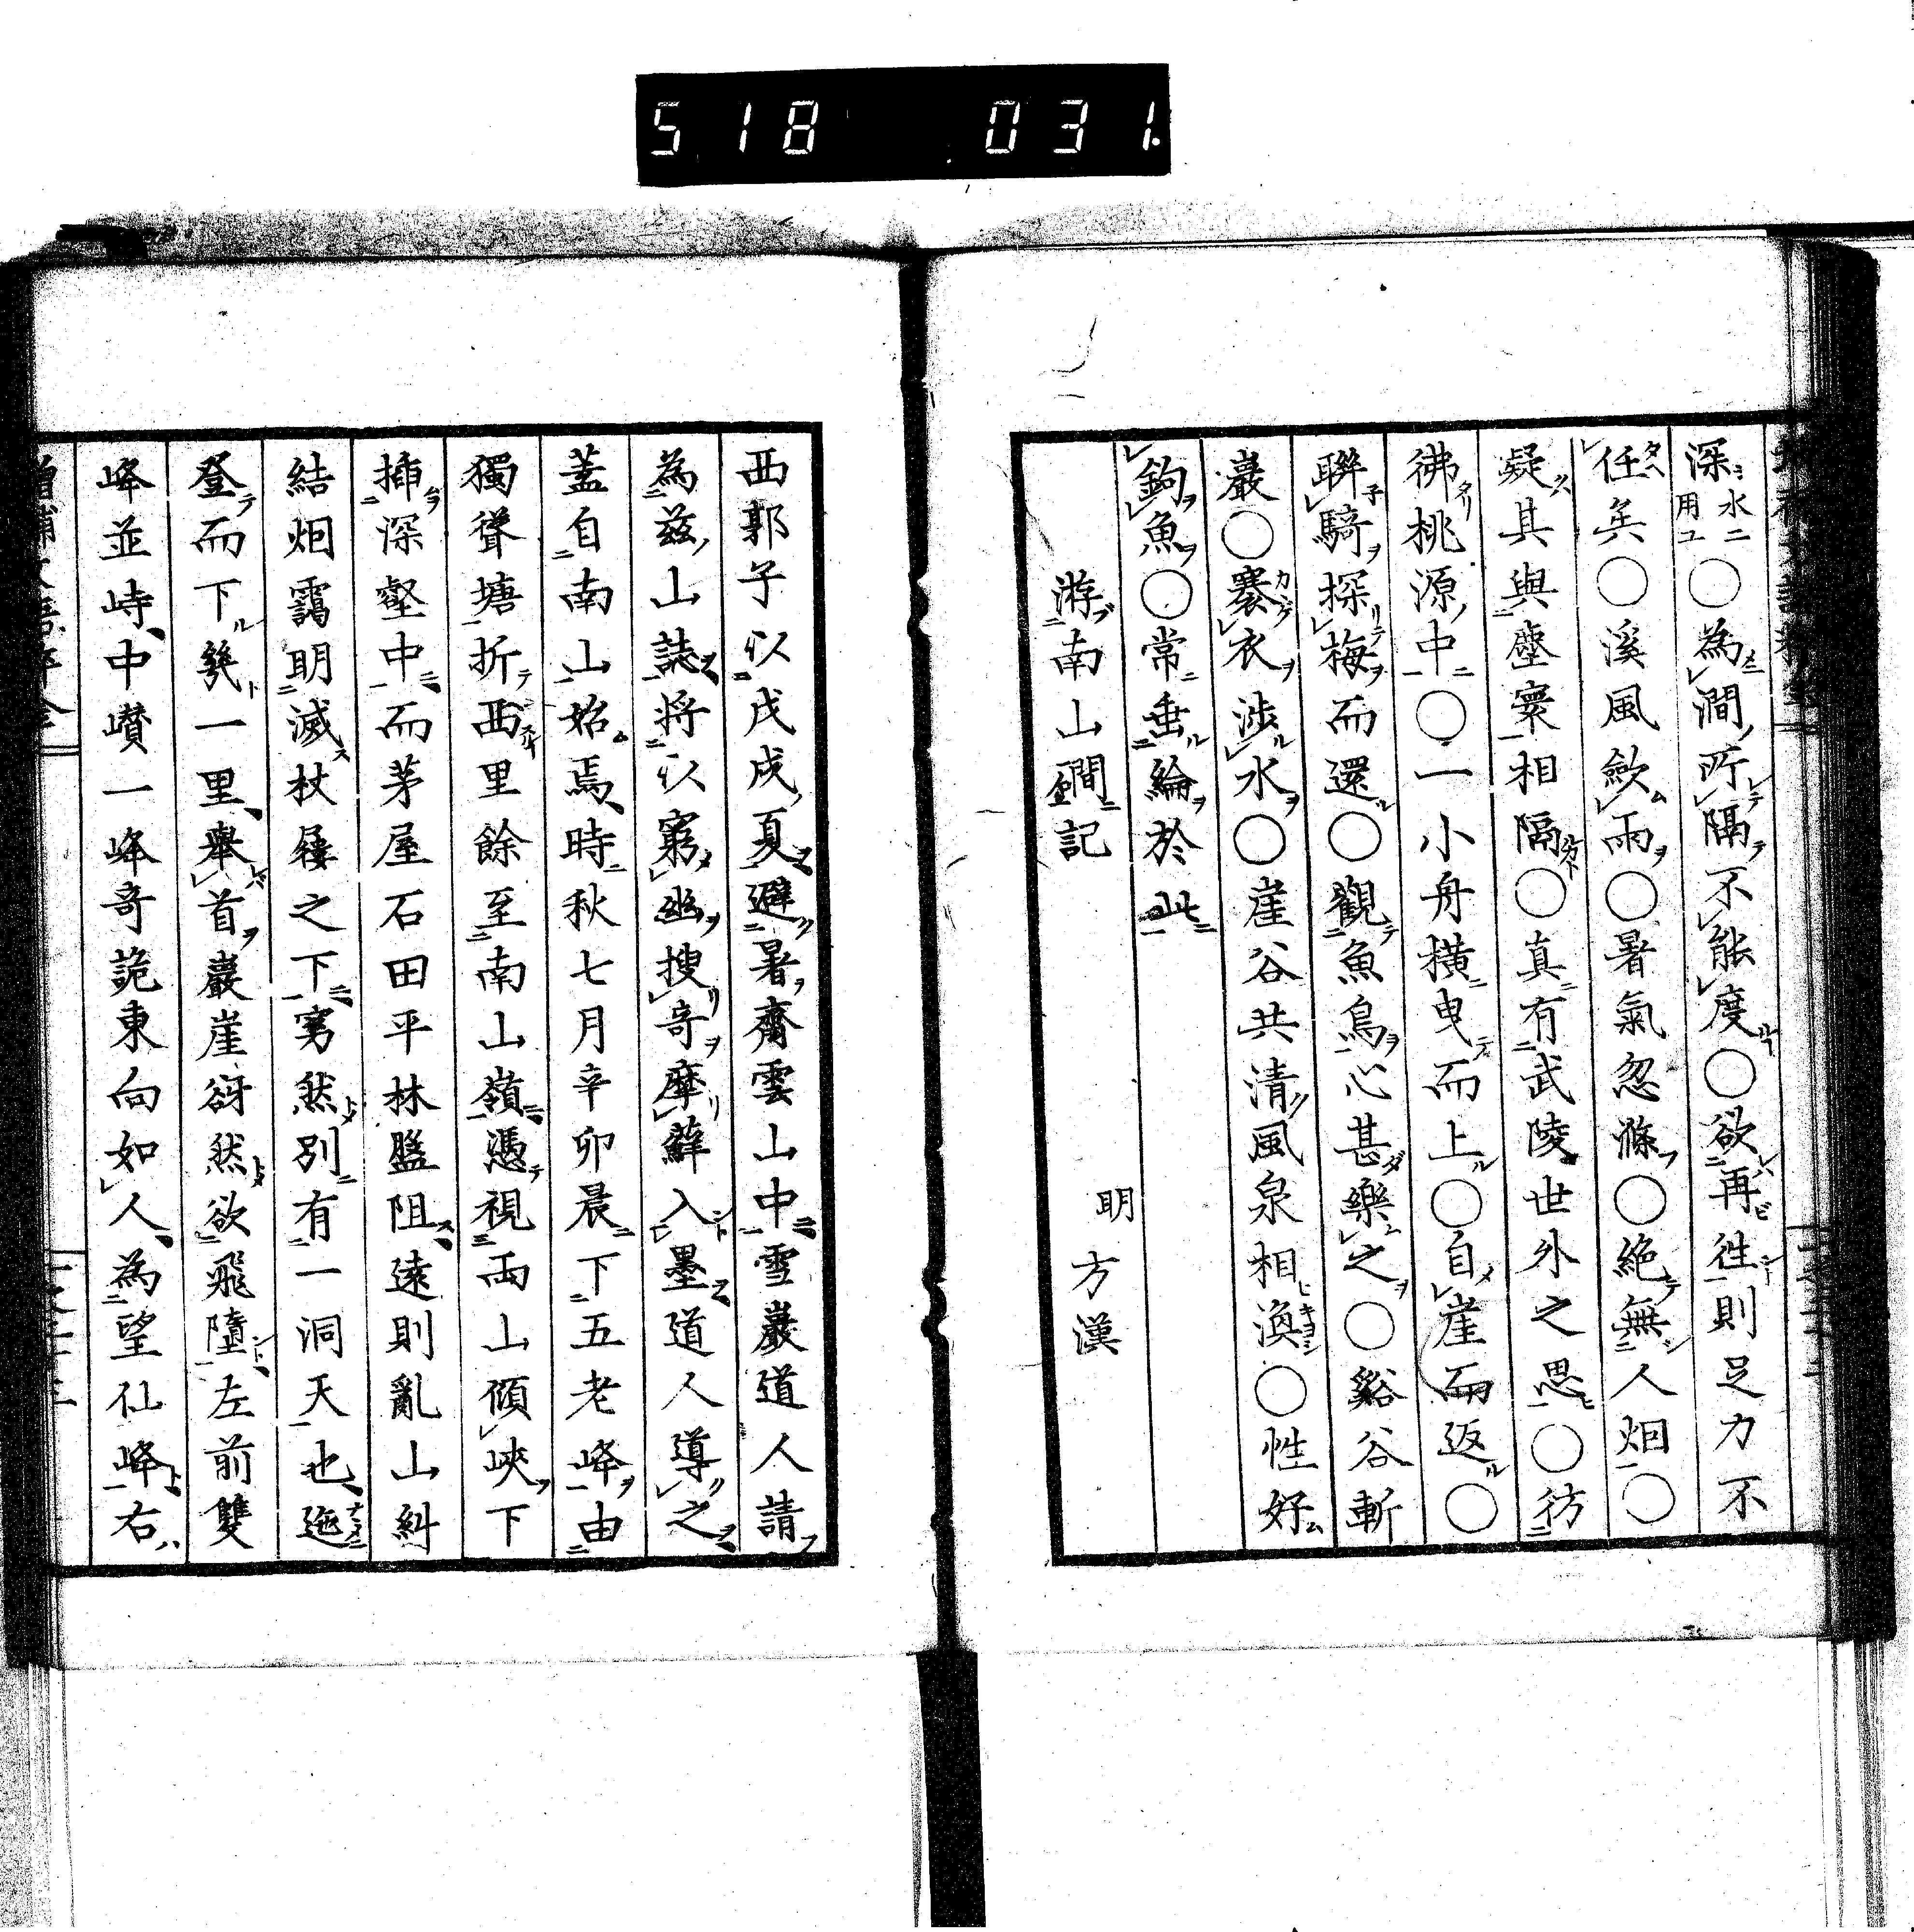 518 031
深水ニ用ユ○為澗所隔不能度○欲再徃則足力不
任矣○溪風歛雨○暑氣忽滌○絶無人烟○
疑其與塵寰相隔○真有武陵世外之思○彷
彿桃源中○一小舟橫曳而上○自崖而返○
聯騎探梅而還○觀魚鳥心甚樂之○谿谷斬
巖○褰衣涉水○崖谷共清風泉相渙○性好
鉤魚○常垂綸於此
游南山澗記 明 方漢
西郭子以戊戌夏避暑齋雲山中雪巖道人請
為茲山誌將以窮幽搜奇摩蘚入墨道人導之
蓋自南山始焉時秋七月辛卯晨下五老峰由
獨聳塘折西里餘至南山嶺憑視兩山傾峽下
插深壑中而茅屋石田平林盤阻遠則亂山糾
結烟靄明滅杖屨之下窅然別有一洞天也迤
登而下幾一里舉首巖崖谺然欲飛墮左前雙
峰並峙中巑一峰奇詭東向如人為望仙峰右